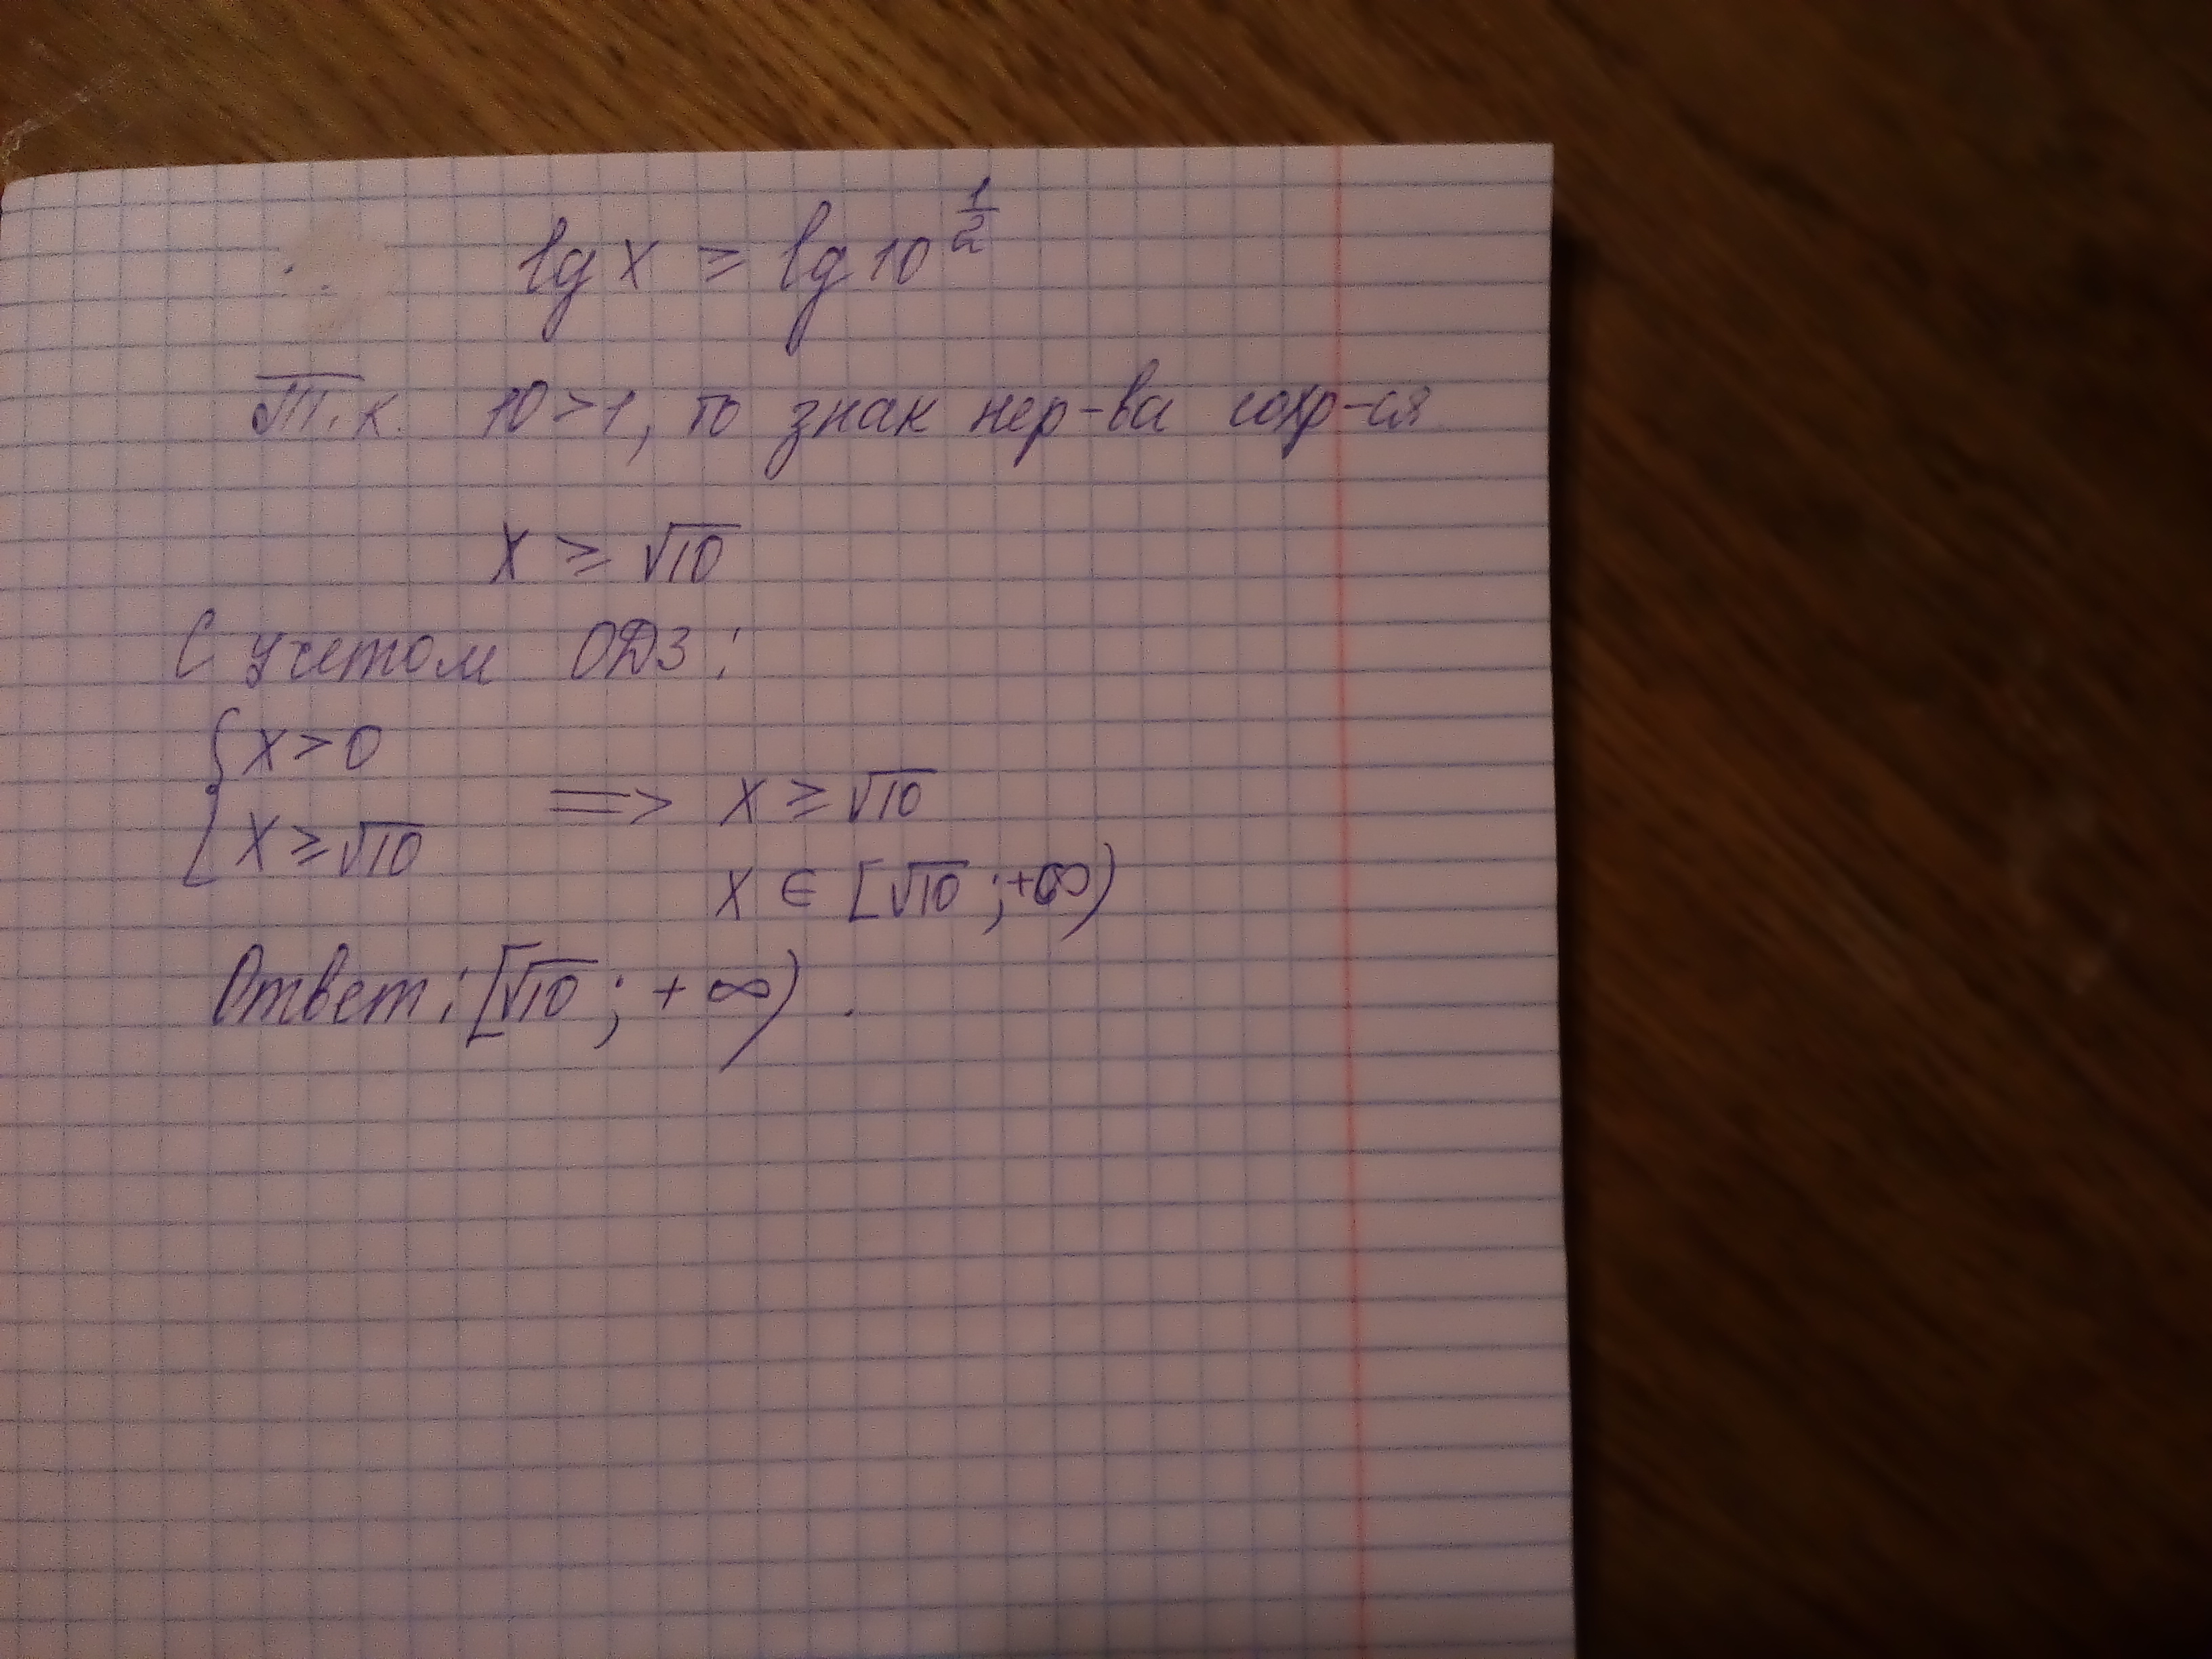 lg x ≥ lg 10^{1/2}
Т.к. 10 > 1, то знак нер-ва сохр-ся
x ≥ √10
С учетом ОДЗ:
{ x > 0
x ≥ √10 => x ≥ √10
x ∈ [√10 ; +∞)
Ответ: [√10 ; + ∞) .